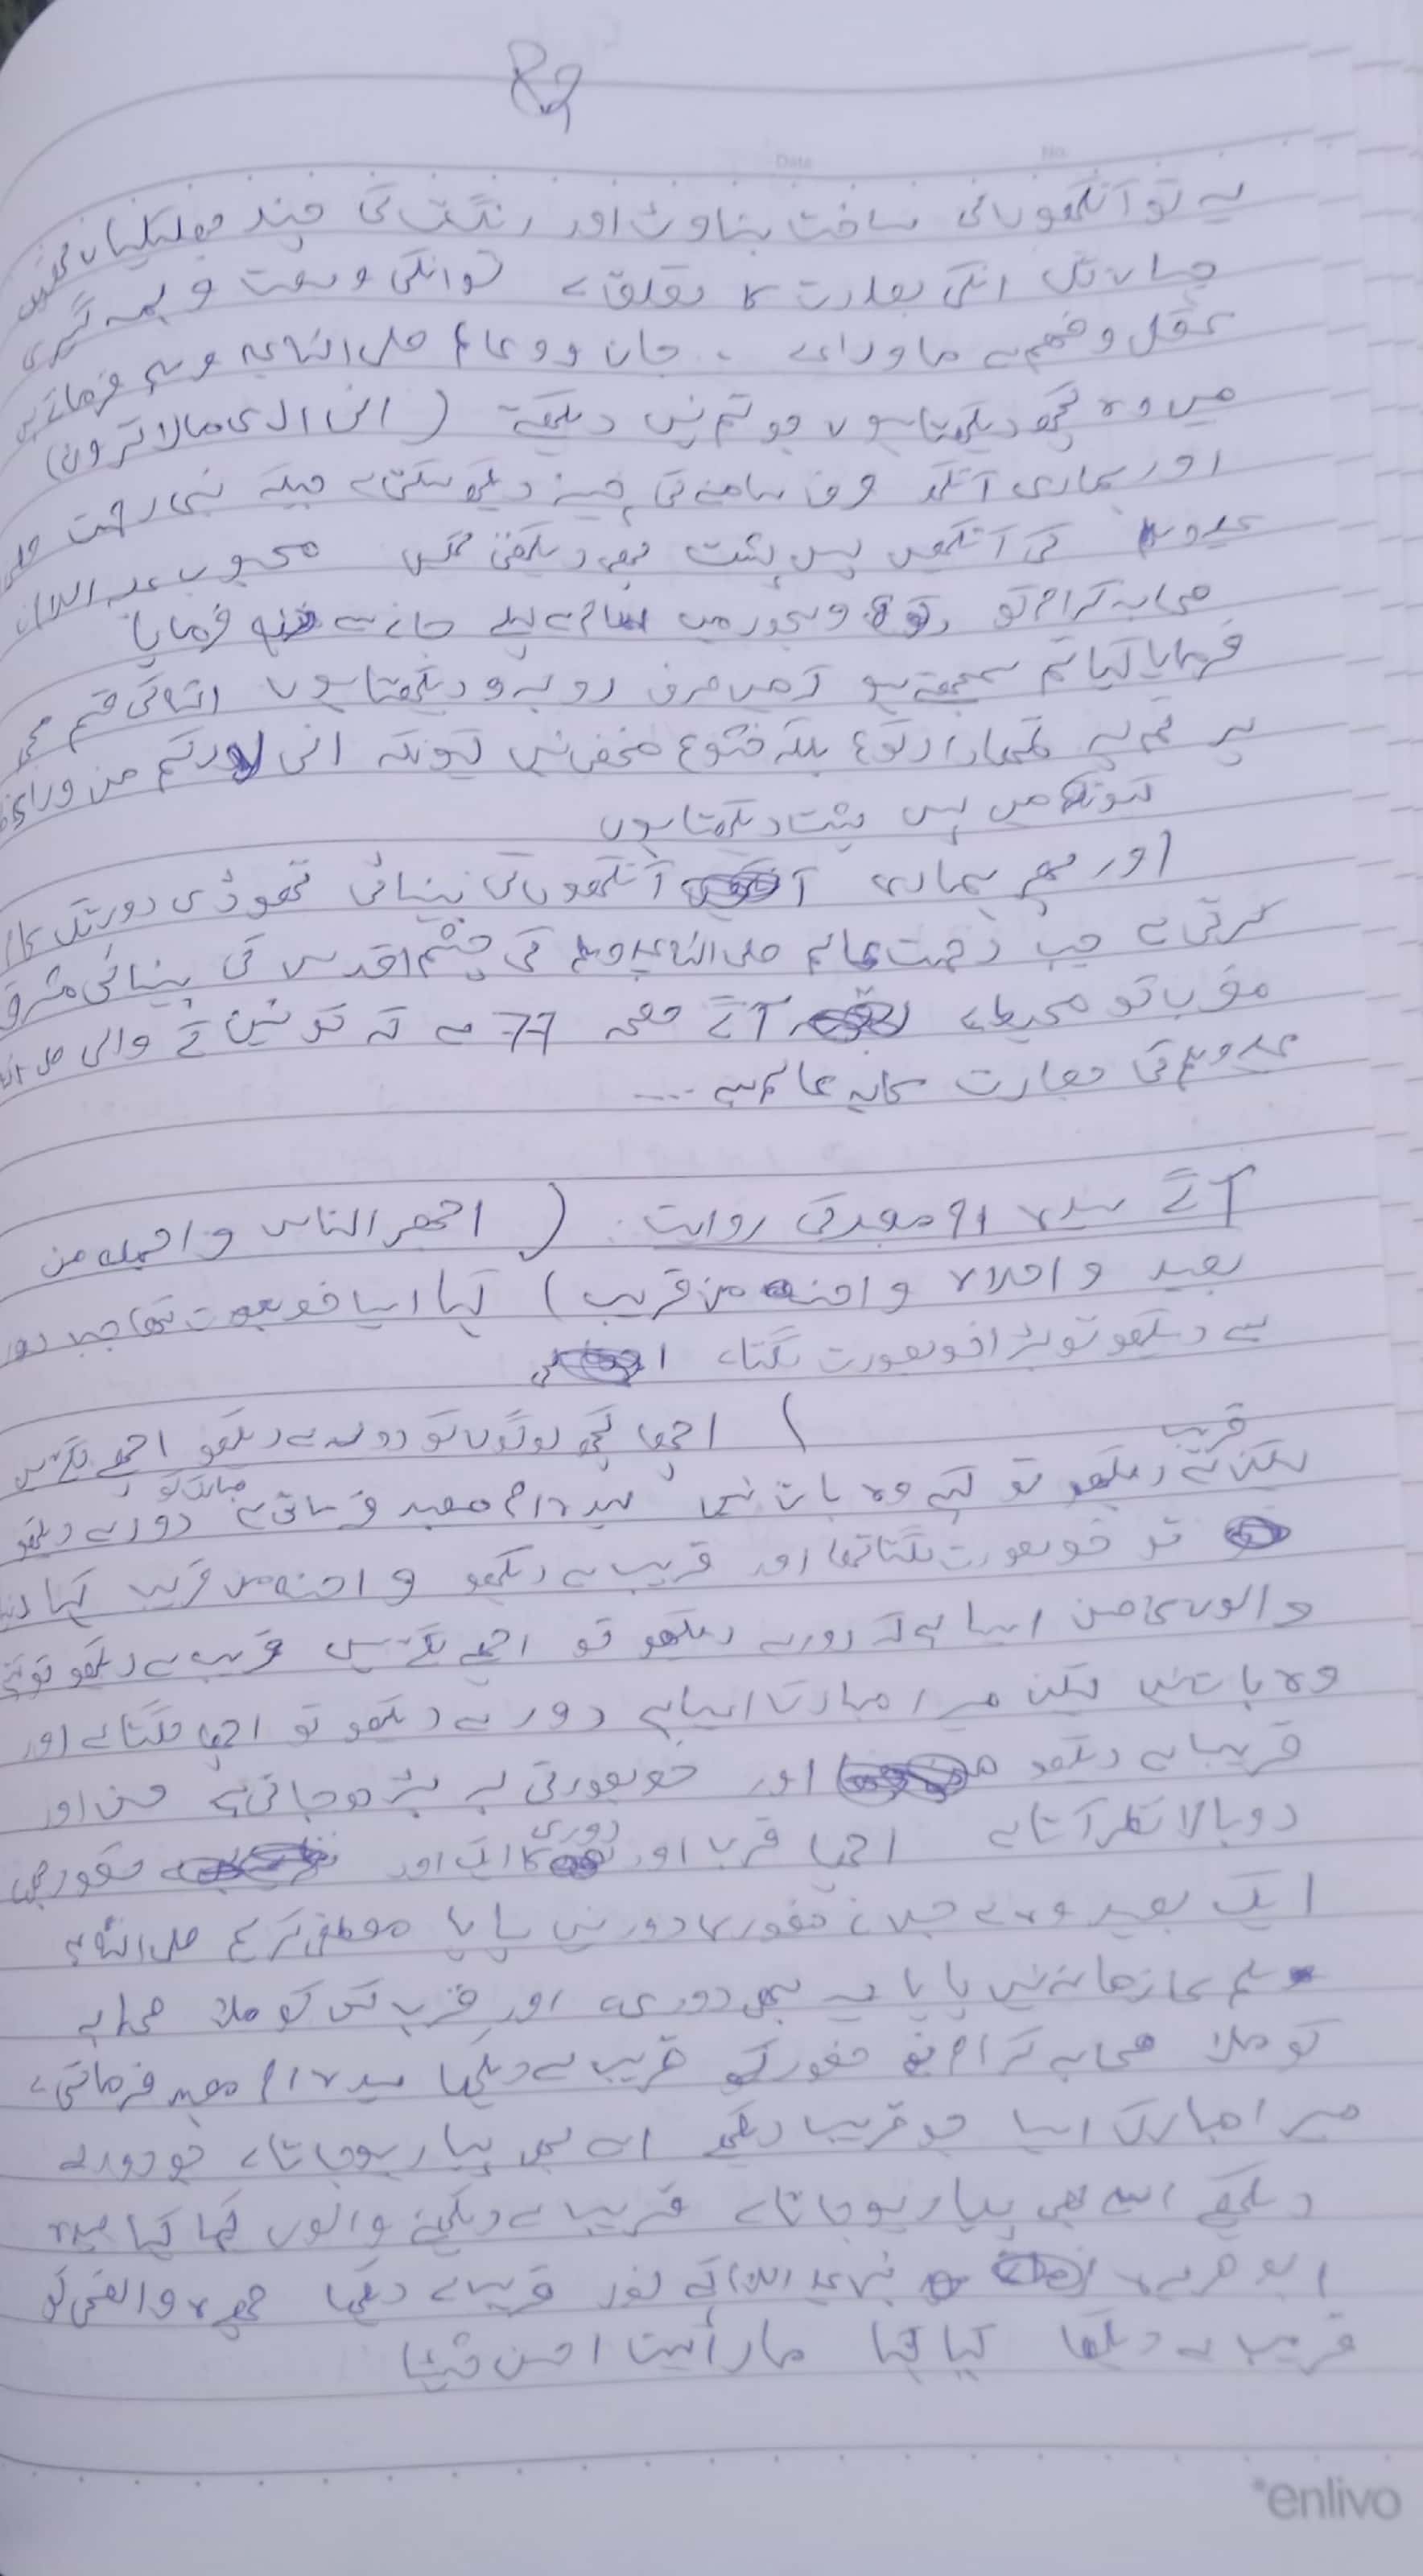 یہ تو آنکھوں کی ساخت بناوٹ اور رنگت کی چند جھلکیاں تھیں
جہاں تک انکی بصارت کا تعلق ہے تو انکی وسعت و ہمہ گیری
عقل و فہم سے ماوراء ہے ۔ جان دو عالم صلی اللہ علیہ وسلم فرماتے ہیں
میں وہ کچھ دیکھتا ہوں جو تم نہیں دیکھتے (انی اری مالا ترون)
اور ہماری آنکھ صرف سامنے کی چیز دیکھ سکتی ہے جبکہ نبی رحمت صلی
علیہ وسلم کی آنکھیں پس پشت بھی دیکھتی تھیں محبوب علیہ السلام
صحابہ کرام کو رکوع و سجود میں امام سے پہلے جانے سے فرمایا
فرمایا کیا تم سمجھتے ہو کہ میں صرف روبرو دیکھتا ہوں اللہ کی قسم مجھ
پر تم پہ تمھارا رکوع بلکہ خشوع مخفی نہیں کیونکہ انی لارکم من وراء
کیونکہ میں پس پشت دیکھتا ہوں
اور پھر ہماری آنکھوں کی بینائی تھوڑی دور تک کام
کرتی ہے جب رحمت عالم صلی اللہ علیہ وسلم کی چشم اقدس کی بینائی مشرق
مغرب کو محیط ہے آگے صفحہ 77 سے کہ کونین کے والی صلی اللہ
علیہ وسلم کی بصارت کا یہ عالم ہے ....
آگے سیدہ ام معبد کی روایت (اجھر الناس و اجملہ من
بعید و احلاہ و احسنہ من قریب) کہا ایسا خوبصورت تھا جب دور
سے دیکھو تو بڑا خوبصورت لگتا ہے
) اچھا کچھ لوگوں کو دور سے دیکھو اچھے لگتے ہیں
قریب
لیکن سے دیکھو تو کہے وہ بات نہیں سیدہ ام معبد فرماتی ہے دور سے دیکھو
تو خوبصورت لگتا تھا اور قریب سے دیکھو و احسنہ من قریب کہا دنیا
والوں کا حسن ایسا ہے کہ دور سے دیکھو تو اچھے لگتے ہیں قریب سے دیکھو تو کہے
وہ بات نہیں لیکن میرا مبارک ایسا ہے دور سے دیکھو تو اچھا لگتا ہے اور
قریب سے دیکھو اور خوبصورتی بڑھ جاتی ہے حسن اور
دوبالا نظر آتا ہے اچھا قرب اور دوری کا ایک اور حضور جی
ایک بعید وہ ہے جس نے حضور کا دور نہیں پایا مصطفی کریم صلی اللہ علیہ
وسلم کا زمانہ نہیں پایا یہ بھی دوری ہے اور قرب کس کو ملا صحابہ
کو ملا صحابہ کرام نے حضور کو قریب سے دیکھا سیدہ ام معبد فرماتی ہے
میرا مبارک ایسا جو قریب دیکھے اسے بھی پیار ہو جاتا ہے جو دور سے
دیکھے اسے بھی پیار ہو جاتا ہے قریب سے دیکھنے والوں کہا کیا سیدہ
ابو ھریرہ نبی علیہ السلام کے نور قریب سے دیکھا چہرہ والضحی کو
قریب سے دیکھا کیا کہا ما رأیت احسن شیئا
enlivo